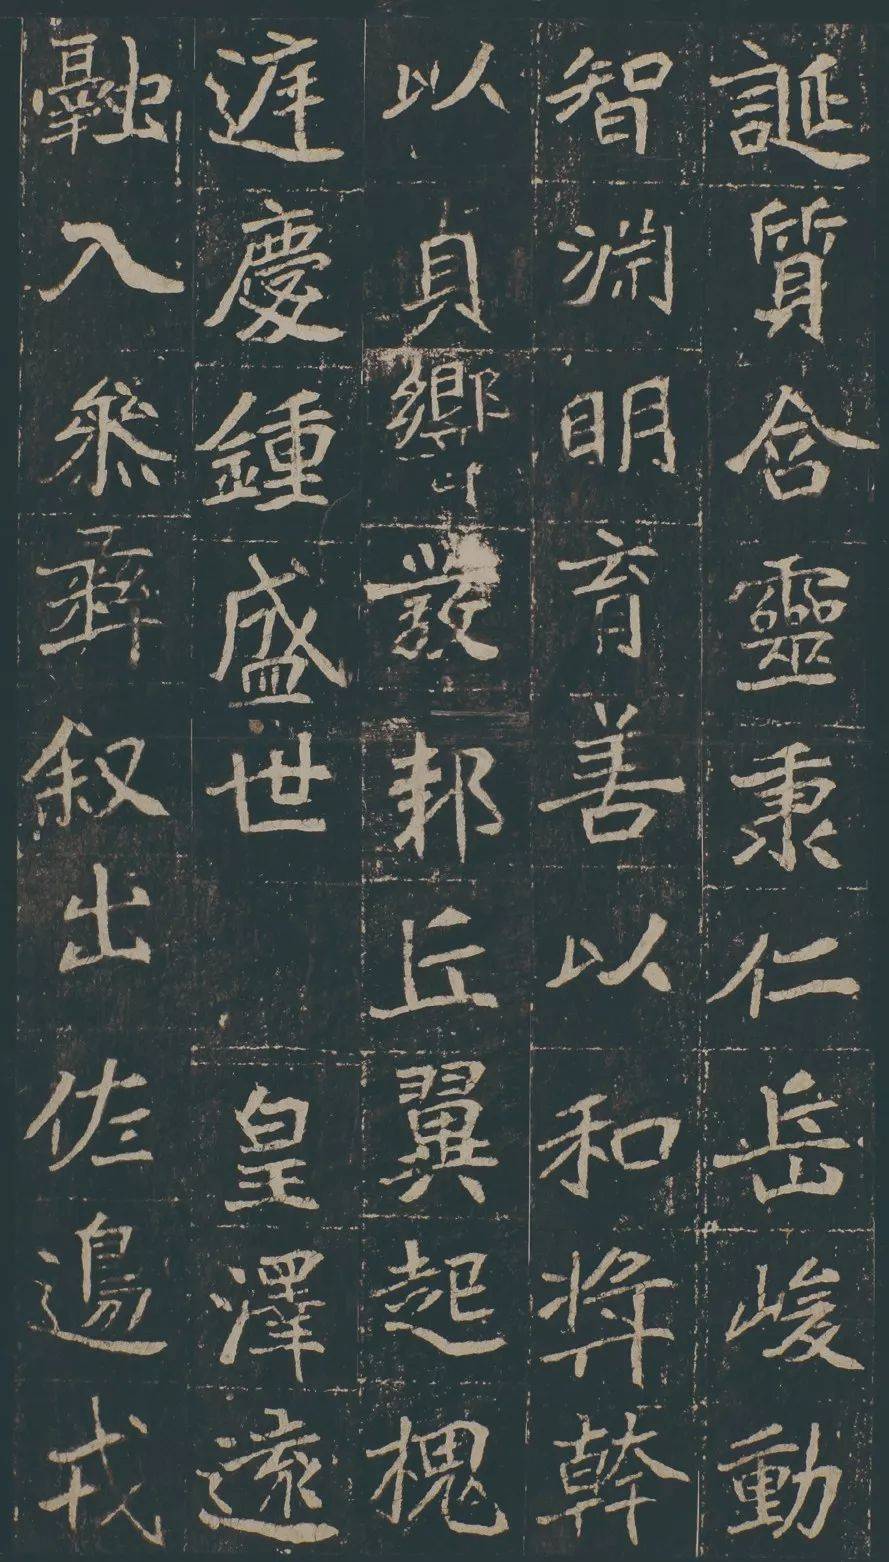 誕質含靈秉仁岳峻動
智淵明育善以和奬幹
以貞響發邦丘翼起槐
庭慶鍾盛世 皇澤遠
融入叅彝叙出佐邊戎